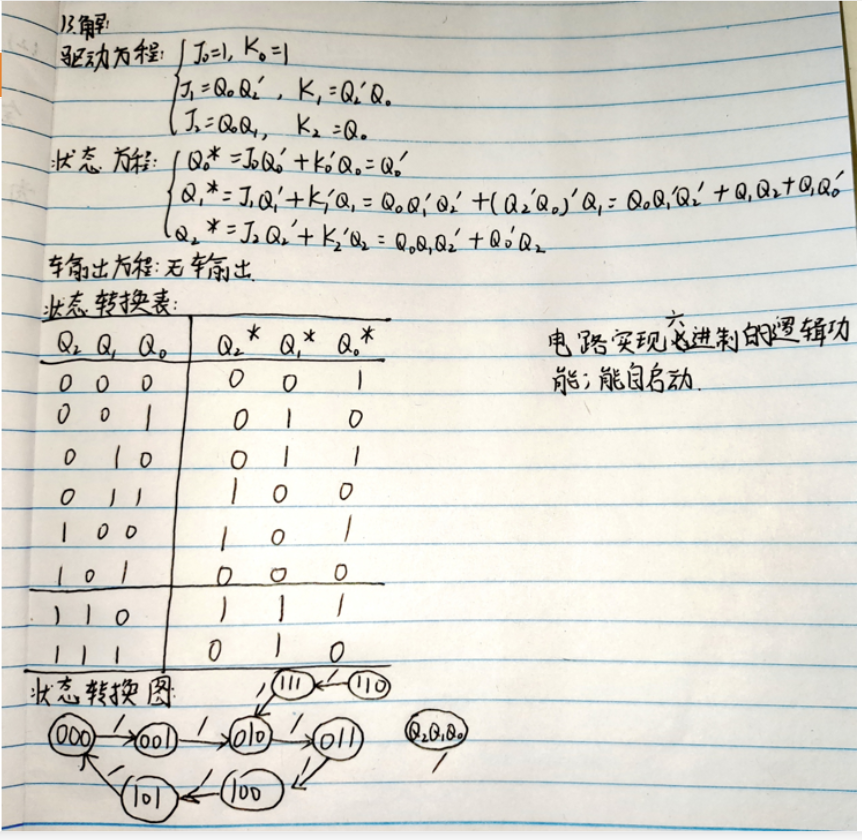 1、解:
驱动方程: J₀=1, K₀=1
J₁=Q₀Q₂′, K₁=Q₂′Q₀
J₂=Q₀Q₁, K₂=Q₀
状态方程: Q₀*=J₀Q₀′+K₀′Q₀=Q₀′
Q₁*=J₁Q₁′+K₁′Q₁=Q₀Q₁′Q₂′+(Q₂′Q₀)′Q₁=Q₀Q₁′Q₂′+Q₁Q₂+Q₁Q₀′
Q₂*=J₂Q₂′+K₂′Q₂=Q₀Q₁Q₂′+Q₀′Q₂
输出方程:无输出
状态转换表:
Q₂ Q₁ Q₀ Q₂* Q₁* Q₀*
0 0 0 0 0 1
0 0 1 0 1 0
0 1 0 0 1 1
0 1 1 1 0 0
1 0 0 1 0 1
1 0 1 0 0 0
1 1 0 1 1 1
1 1 1 0 1 0
电路实现六进制的逻辑功
能;能自启动.
状态转换图:
111 / 110
000 / 001 / 010 / 011 Q₂Q₁Q₀
/ 101 / 100 / /